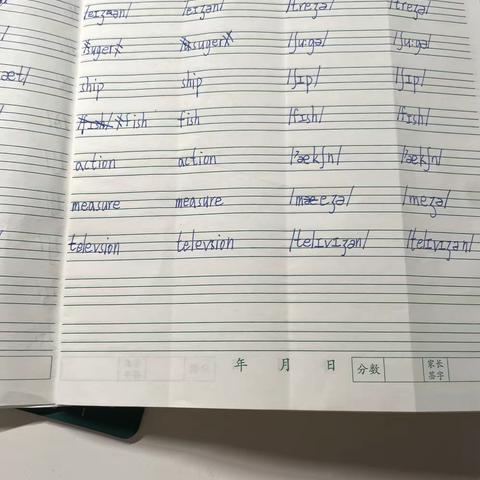 /eɪʒən/ /eɪʒən/ /treʒə/ /treʒə/
suger suger /ʃu:gə/ /ʃu:gə/
ætl/ ship ship /ʃɪp/ /ʃɪp/
fish fish /fɪsh/ /fɪsh/
action action /'ækʃn/ /'ækʃn/
measure measure /meʒə/ /meʒə/
televsion televsion /telɪvɪʒən/ /telɪvɪʒən/
年 月 日 分数 家长签字